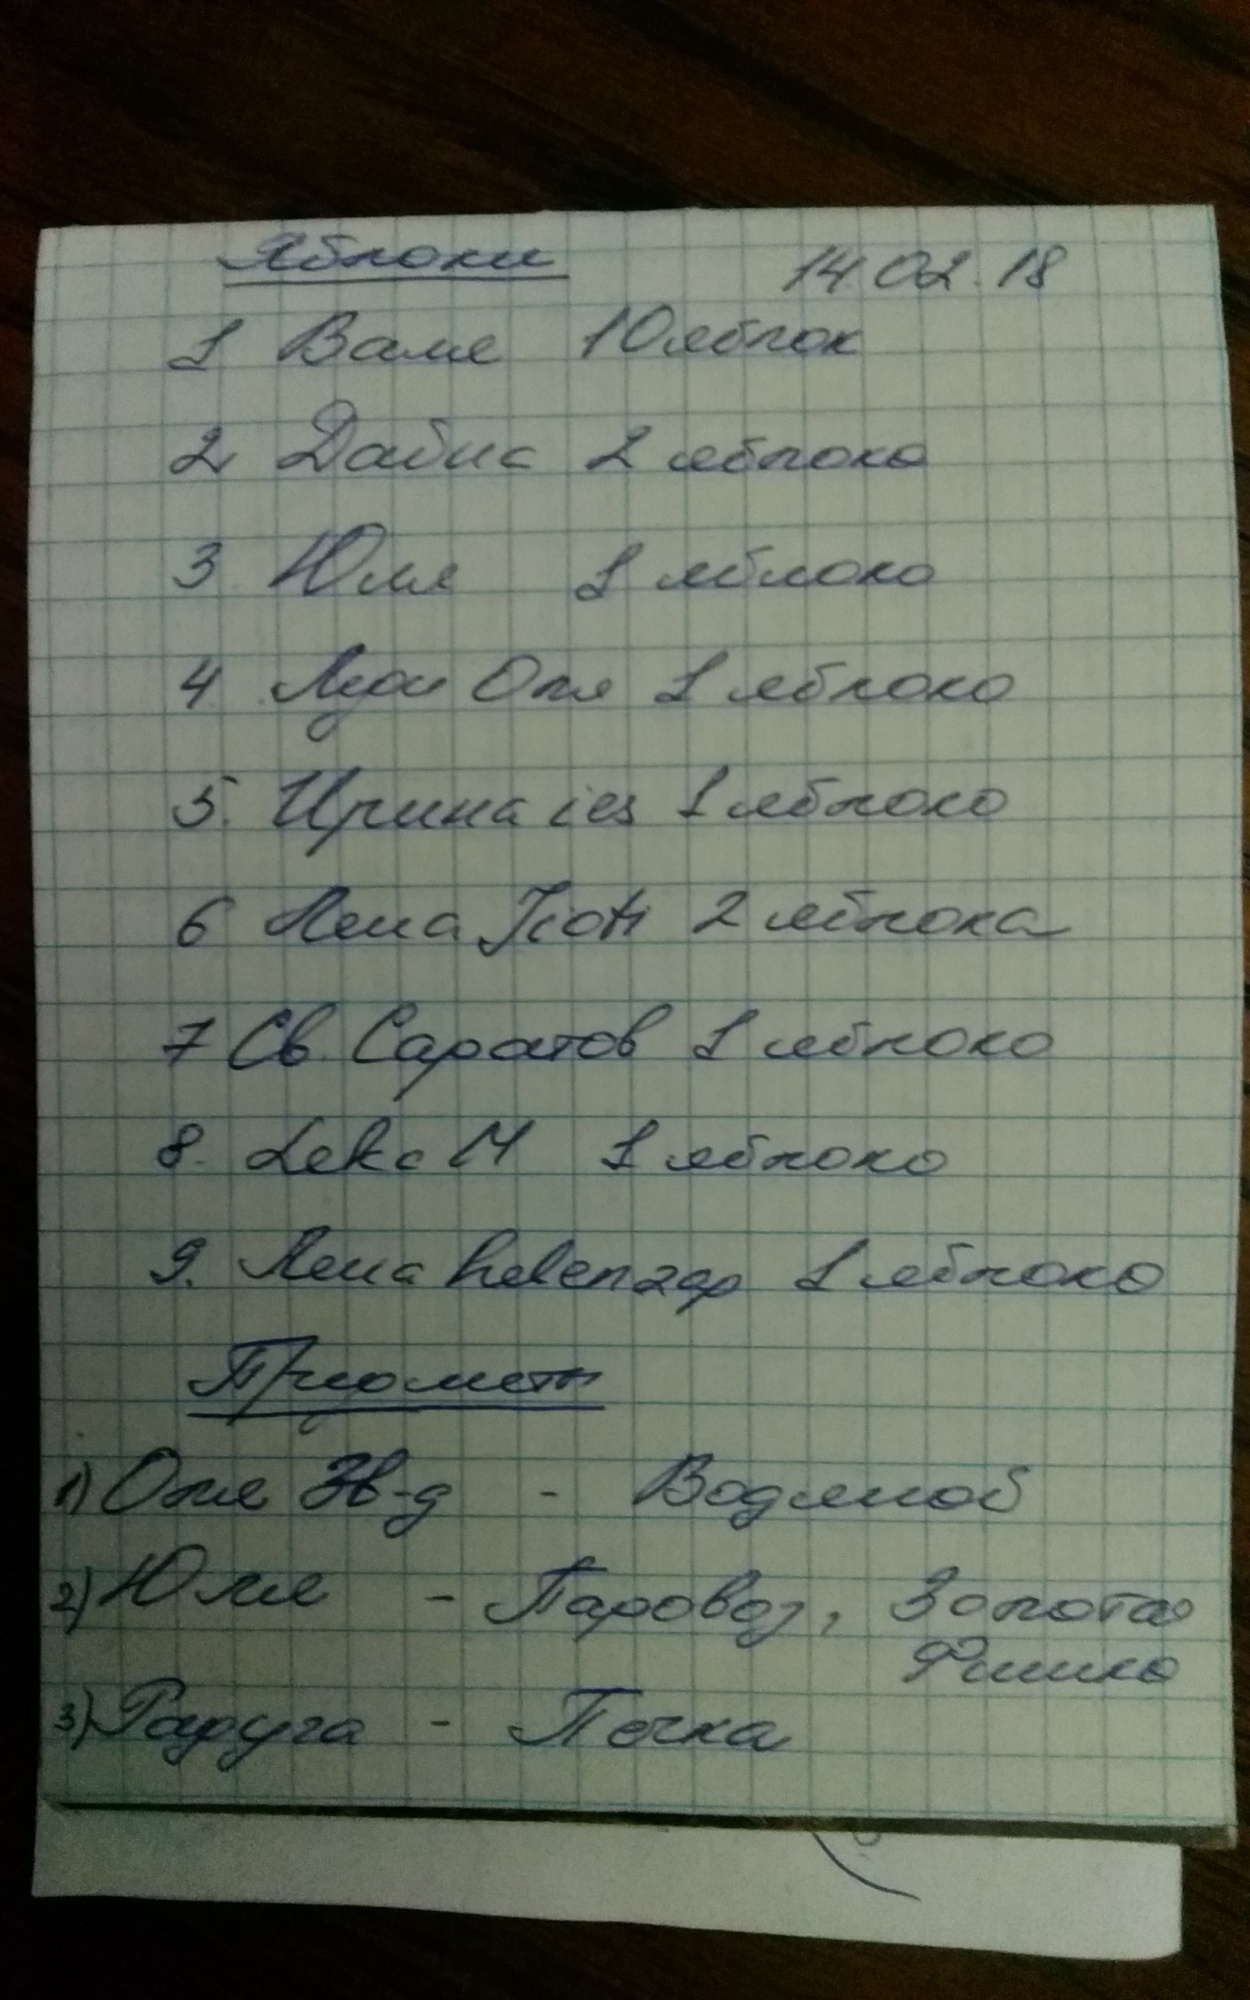 Яблоки 14.02.18
1 Валя 10 яблок
2 Дабис 2 яблоко
3 Юля 1 яблоко
4 Оля 1 яблоко
5. Ирина ies 1 яблоко
6 Лена 2 яблока
7 Св. Саратов 1 яблоко
8. Lekc M 1 яблоко
9. Лена helenzap 1 яблоко
1) Оля Зв-д - Водяной
2) Юля - Паровоз, Золотая
3) Радуга - Печка